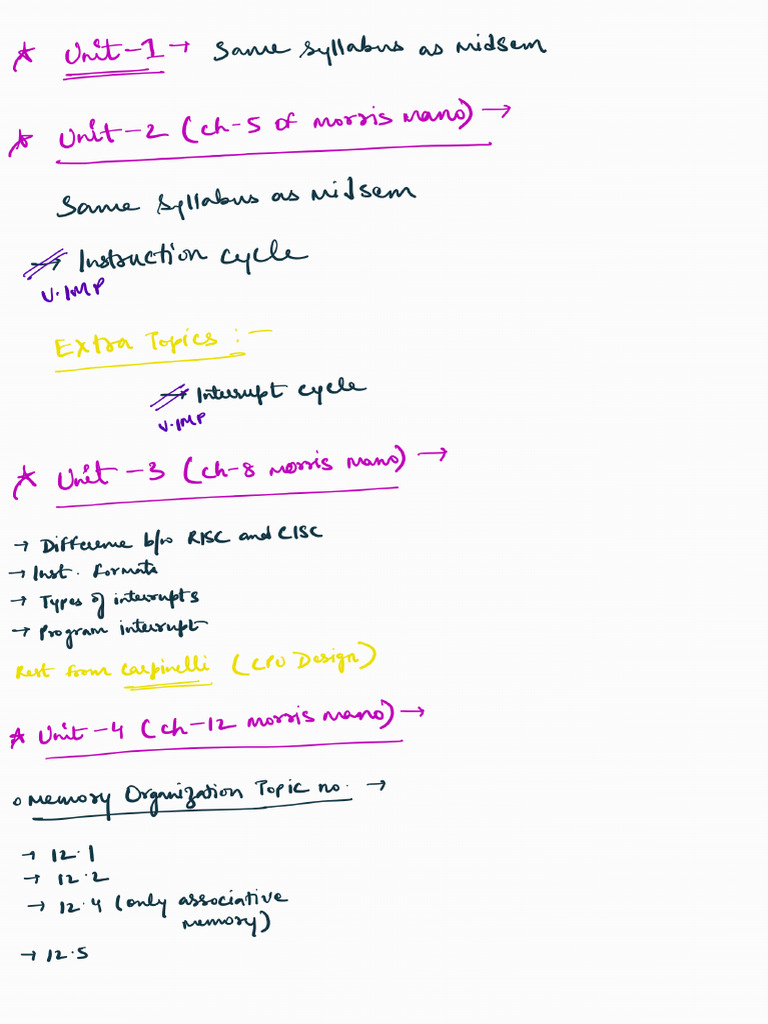 * Unit-1 → Same syllabus as midsem
* Unit-2 (ch-5 of morris mano) →
Same syllabus as midsem
→ Instruction cycle
V.IMP
Extra Topics :-
→ Interrupt cycle
V.IMP
* Unit-3 (ch-8 morris mano) →
→ Difference b/w RISC and CISC
→ Inst. formats
→ Types of interrupts
→ Program interrupt
Rest from Carpinelli (CPU Design)
* Unit-4 (ch-12 morris mano) →
o Memory Organization Topic no. →
→ 12.1
→ 12.2
→ 12.4 (only associative
memory)
→ 12.5